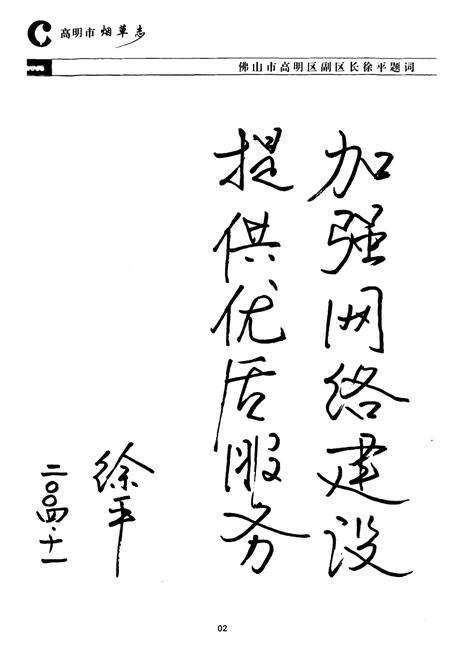 高明市烟草志
佛山市高明区副区长徐平题词
加强网络建设
提供优质服务
徐平
二〇〇四·十一
02